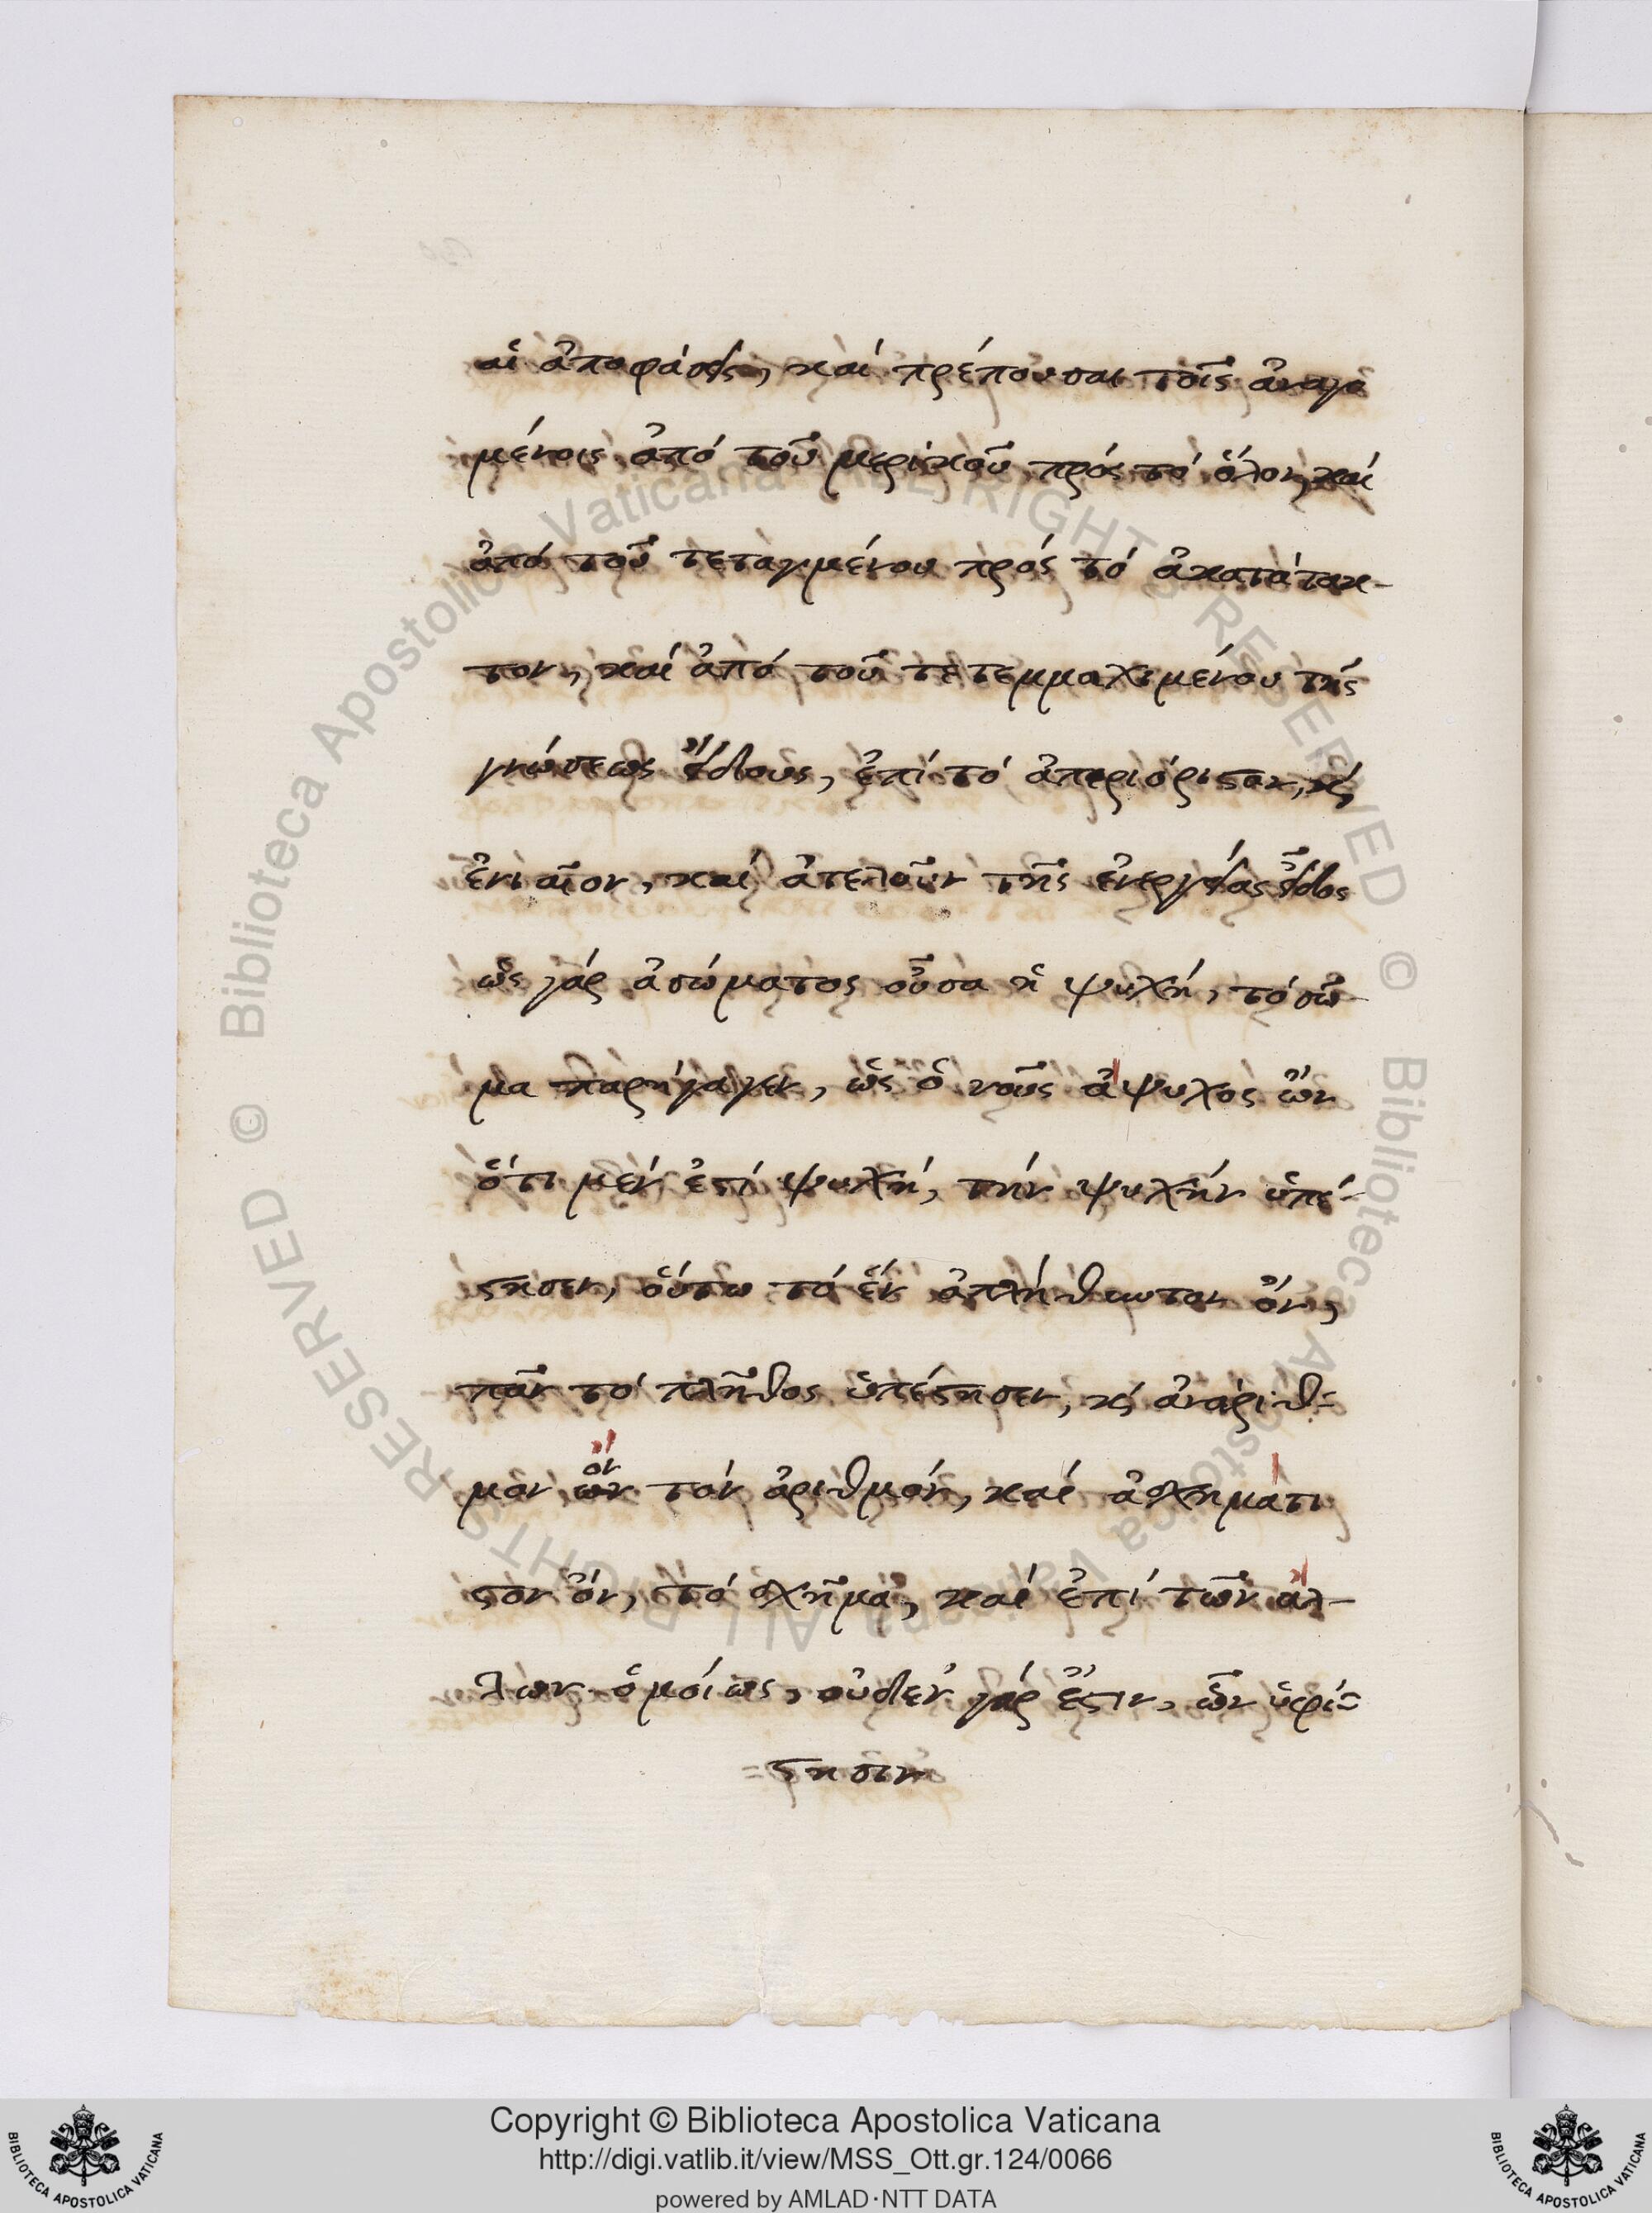 αἱ ἀποφάσεις, καί πρέπουσαι τοῖς ἀναγο
μένοις ἀπό τοῦ μερικοῦ πρός τό ὅλον, καί
ἀπό τοῦ τεταγμένου πρός τό ἀκατάτακ-
τον, καί ἀπό τοῦ τετεμμαχιμένου τῆς
γνώσεως εἴδους, ἐπί τό ἀπεριόριστον, κ́
ἑνιαῖον, καί ἀτελοῦν τῆς ἐνεργείας εἶδος
ὡς γάρ ἀσώματος οὖσα ἡ ψυχή, τό σῶ-
μα παρήγαγεν, ὡς ὁ νοῦς ἄψυχος ὢν
ὅτι μέν ἐστί ψυχή, τήν ψυχήν ὑπέ-
στησεν, οὕτω τό ἕν ἀπλήθωτον ὄν,
πᾶν τό πλῆθος ὑπέστησεν, κ́ ἀνάριθ=
μον ὢν ὄν τόν ἀριθμόν, καί ἀσχημάτι
στον ὄν, τό σχῆμα, καί ἐπί τῶν ἄλ-
λων ὁμοίως, οὐδέν γάρ ἔστιν, ὧν ὑφί=
=στησιν
Copyright © Biblioteca Apostolica Vaticana
http://digi.vatlib.it/view/MSS_Ott.gr.124/0066
powered by AMLAD·NTT DATA